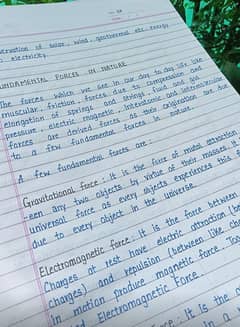 ruction of solar, wind, geothermal etc energy
electricity.
FUNDAMENTAL FORCES IN NATURE
The forces which we see in our day to day life like
muscular, friction, forces due to compression and
elongation of springs and strings, fluid and gas
pressure, electric, magnetic, interatomic and intermolecular
forces are derived forces as their origination are due
to a few fundamental forces in nature.
A few fundamental forces are:
Gravitational force: It is the force of mutual attraction
-een any two objects by virtue of their masses. It
universal force as every objects experiences this
due to every object in the universe.
Electromagnetic force: It is the force between
Charges at rest have electric attraction (be
charges) and repulsion (between like cha
in motion produce magnetic force. Toge
Electromagnetic Force.
: It is the